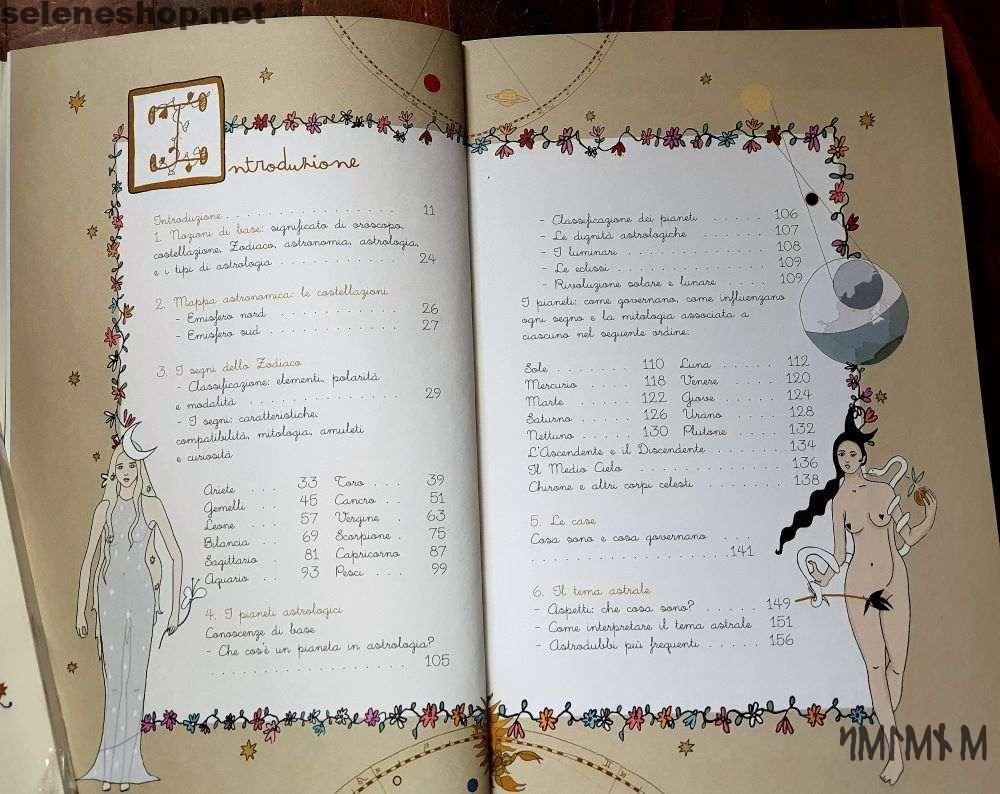 seleneshop.net
Introduzione
Introduzione . . . . . . . . . . . . . . . . 11
1. Nozioni di base: significato di oroscopo,
costellazione, Zodiaco, astronomia, astrologia,
e i tipi di astrologia . . . . . . . . . . . 24
2. Mappa astronomica: le costellazioni
- Emisfero nord . . . . . . . . . . . 26
- Emisfero sud . . . . . . . . . . . 27
3. I segni dello Zodiaco
- Classificazione: elementi, polarità
e modalità . . . . . . . . . . . . . . 29
- I segni: caratteristiche,
compatibilità, mitologia, amuleti
e curiosità
Ariete . . . 33 Toro . . . 39
Gemelli . . 45 Cancro . . 51
Leone . . . 57 Vergine . 63
Bilancia . . 69 Scorpione . 75
Sagittario . 81 Capricorno 87
Aquario . . 93 Pesci . . . 99
4. I pianeti astrologici
Conoscenze di base
- Che cos'è un pianeta in astrologia?
. . . . . . . . . . . . . . . . . . 105
- Classificazione dei pianeti . . . . . . 106
- Le dignità astrologiche . . . . . . . 107
- I luminari . . . . . . . . . . . . . 108
- Le eclissi . . . . . . . . . . . . . . 109
- Rivoluzione solare e lunare . . . . 109
I pianeti: come governano, come influenzano
ogni segno e la mitologia associata a
ciascuno nel seguente ordine:
Sole . . . . . . 110 Luna . . . . . 112
Mercurio . . . . 118 Venere . . . . 120
Marte . . . . . 122 Giove . . . . 124
Saturno . . . . 126 Urano . . . . 128
Nettuno . . . . 130 Plutone . . . 132
L'Ascendente e il Discendente . . . . . 134
Il Medio Cielo . . . . . . . . . . . . 136
Chirone e altri corpi celesti . . . . . . 138
5. Le case
Cosa sono e cosa governano . . .
. . . . . . . . . . . . . . . . . 141
6. Il tema astrale
- Aspetti: che cosa sono? . . . . . . 149
- Come interpretare il tema astrale 151
- Astrodubbi più frequenti . . . . . 156